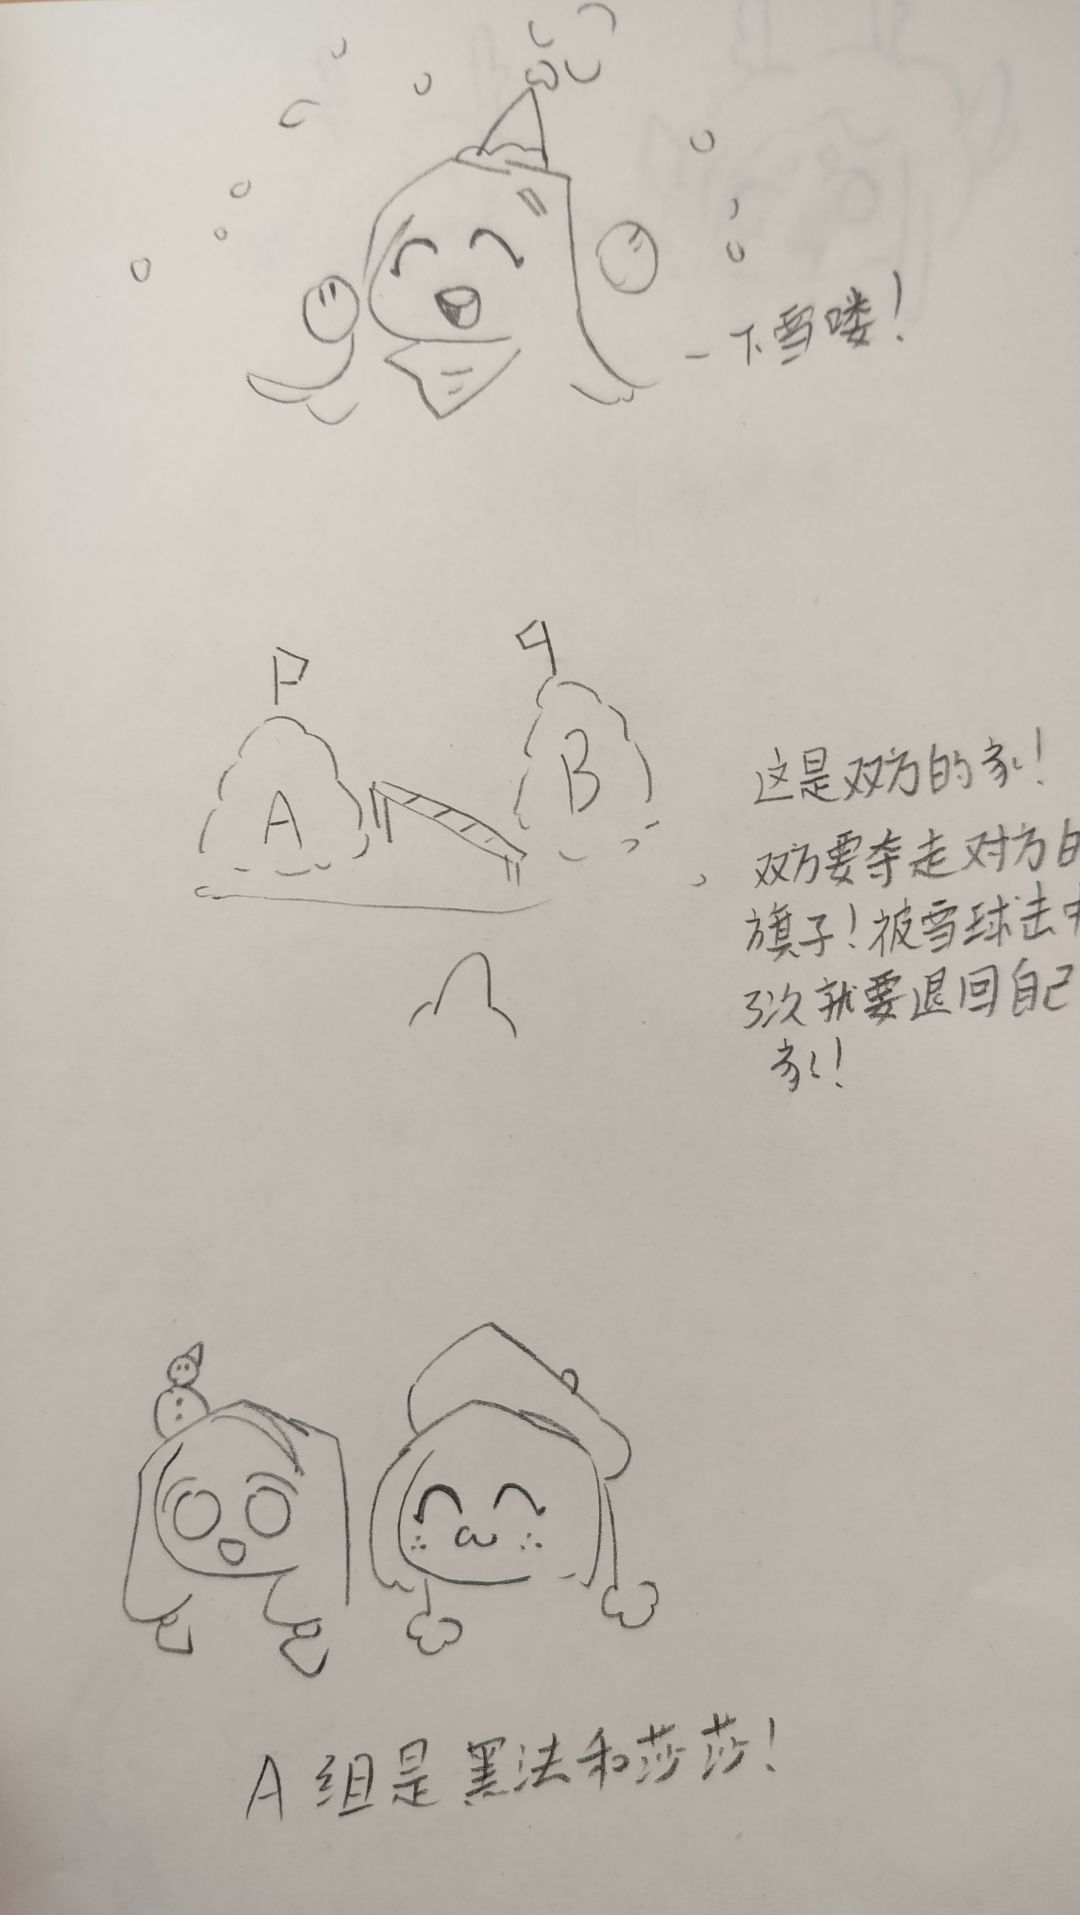 一下雪喽！
A
B
这是双方的家！
双方要夺走对方的
旗子！被雪球击中
3次就要退回自己
家！
A组是黑法和莎莎！